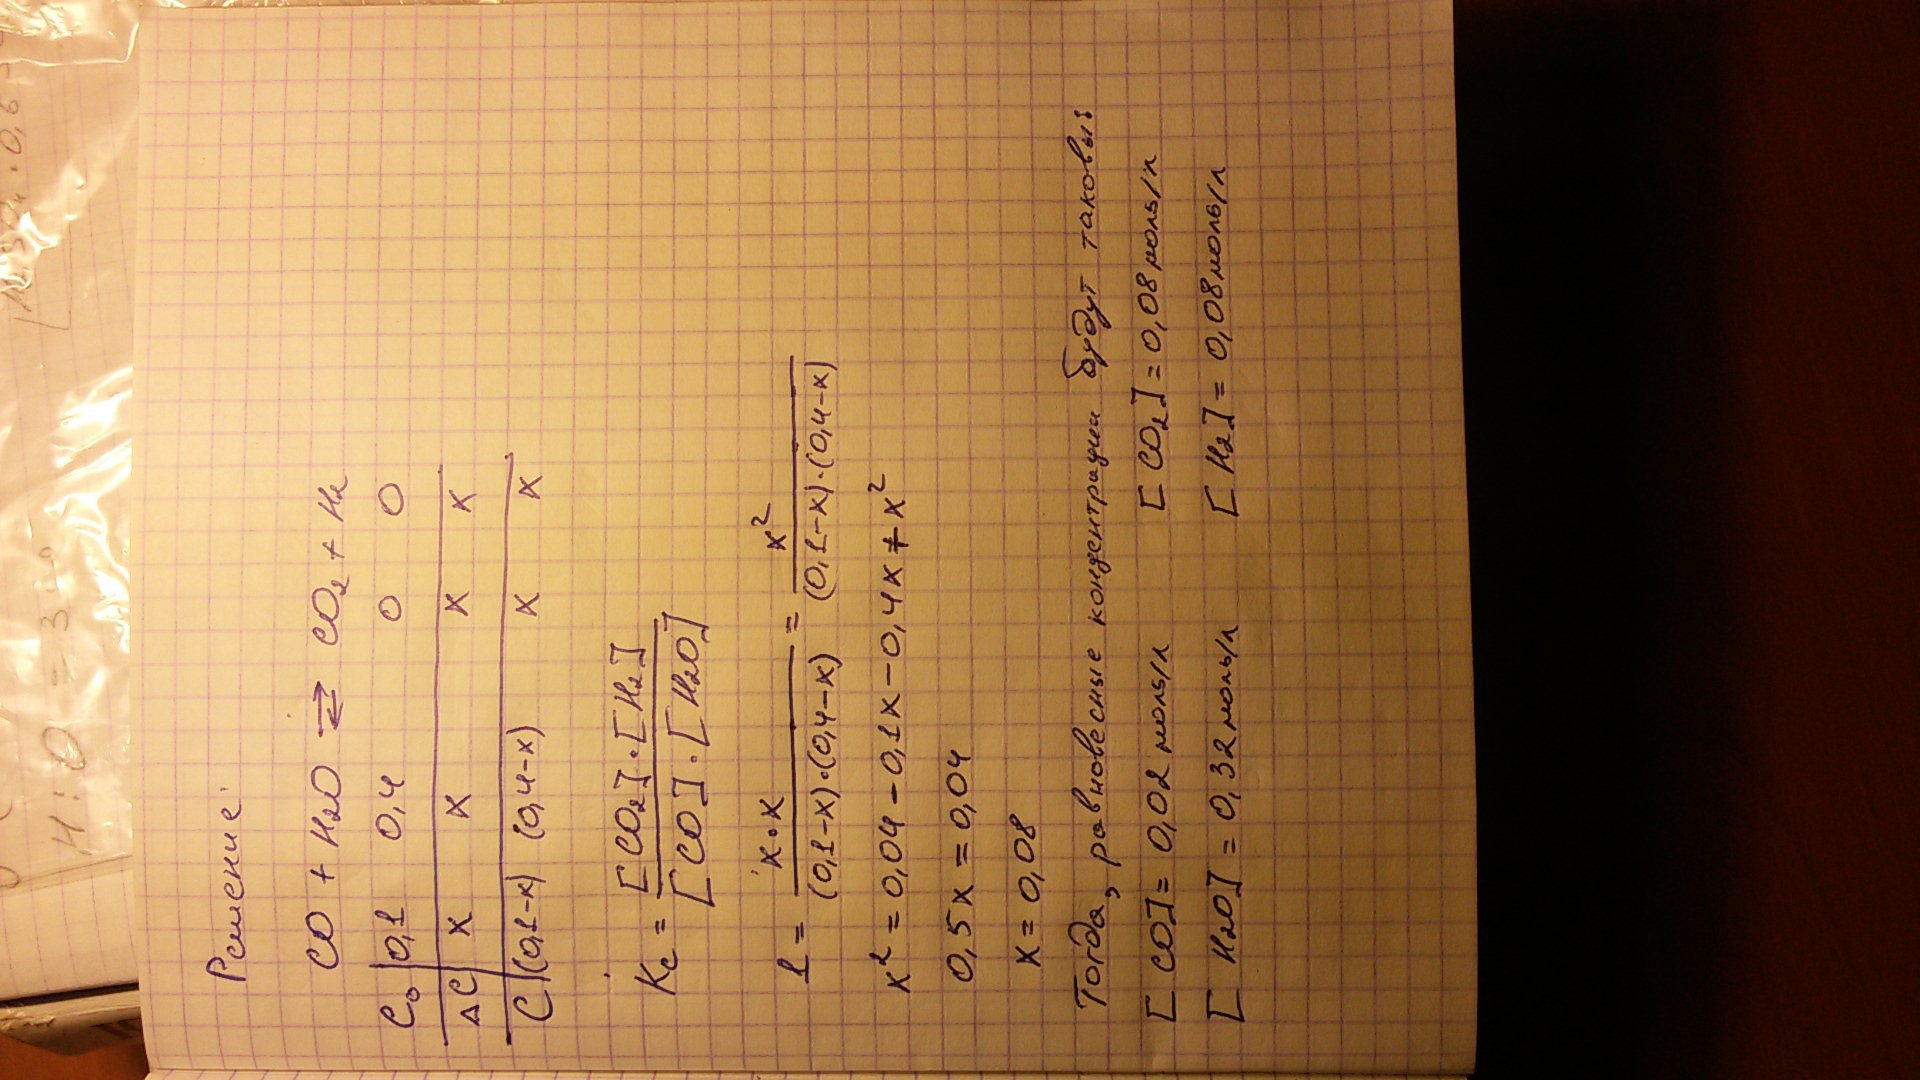 Решение:
CO + H2O ⇄ CO2 + H2
C0 | 0,1 0,4 0 0
ΔC | x x x x
C | (0,1-x) (0,4-x) x x
Kc = [CO2]·[H2] / [CO]·[H2O]
1 = x·x / (0,1-x)·(0,4-x) = x² / (0,1-x)·(0,4-x)
x² = 0,04 - 0,1x - 0,4x + x²
0,5x = 0,04
x = 0,08
Тогда, равновесные концентрации будут таковы:
[CO] = 0,02 моль/л [CO2] = 0,08 моль/л
[H2O] = 0,32 моль/л [H2] = 0,08 моль/л